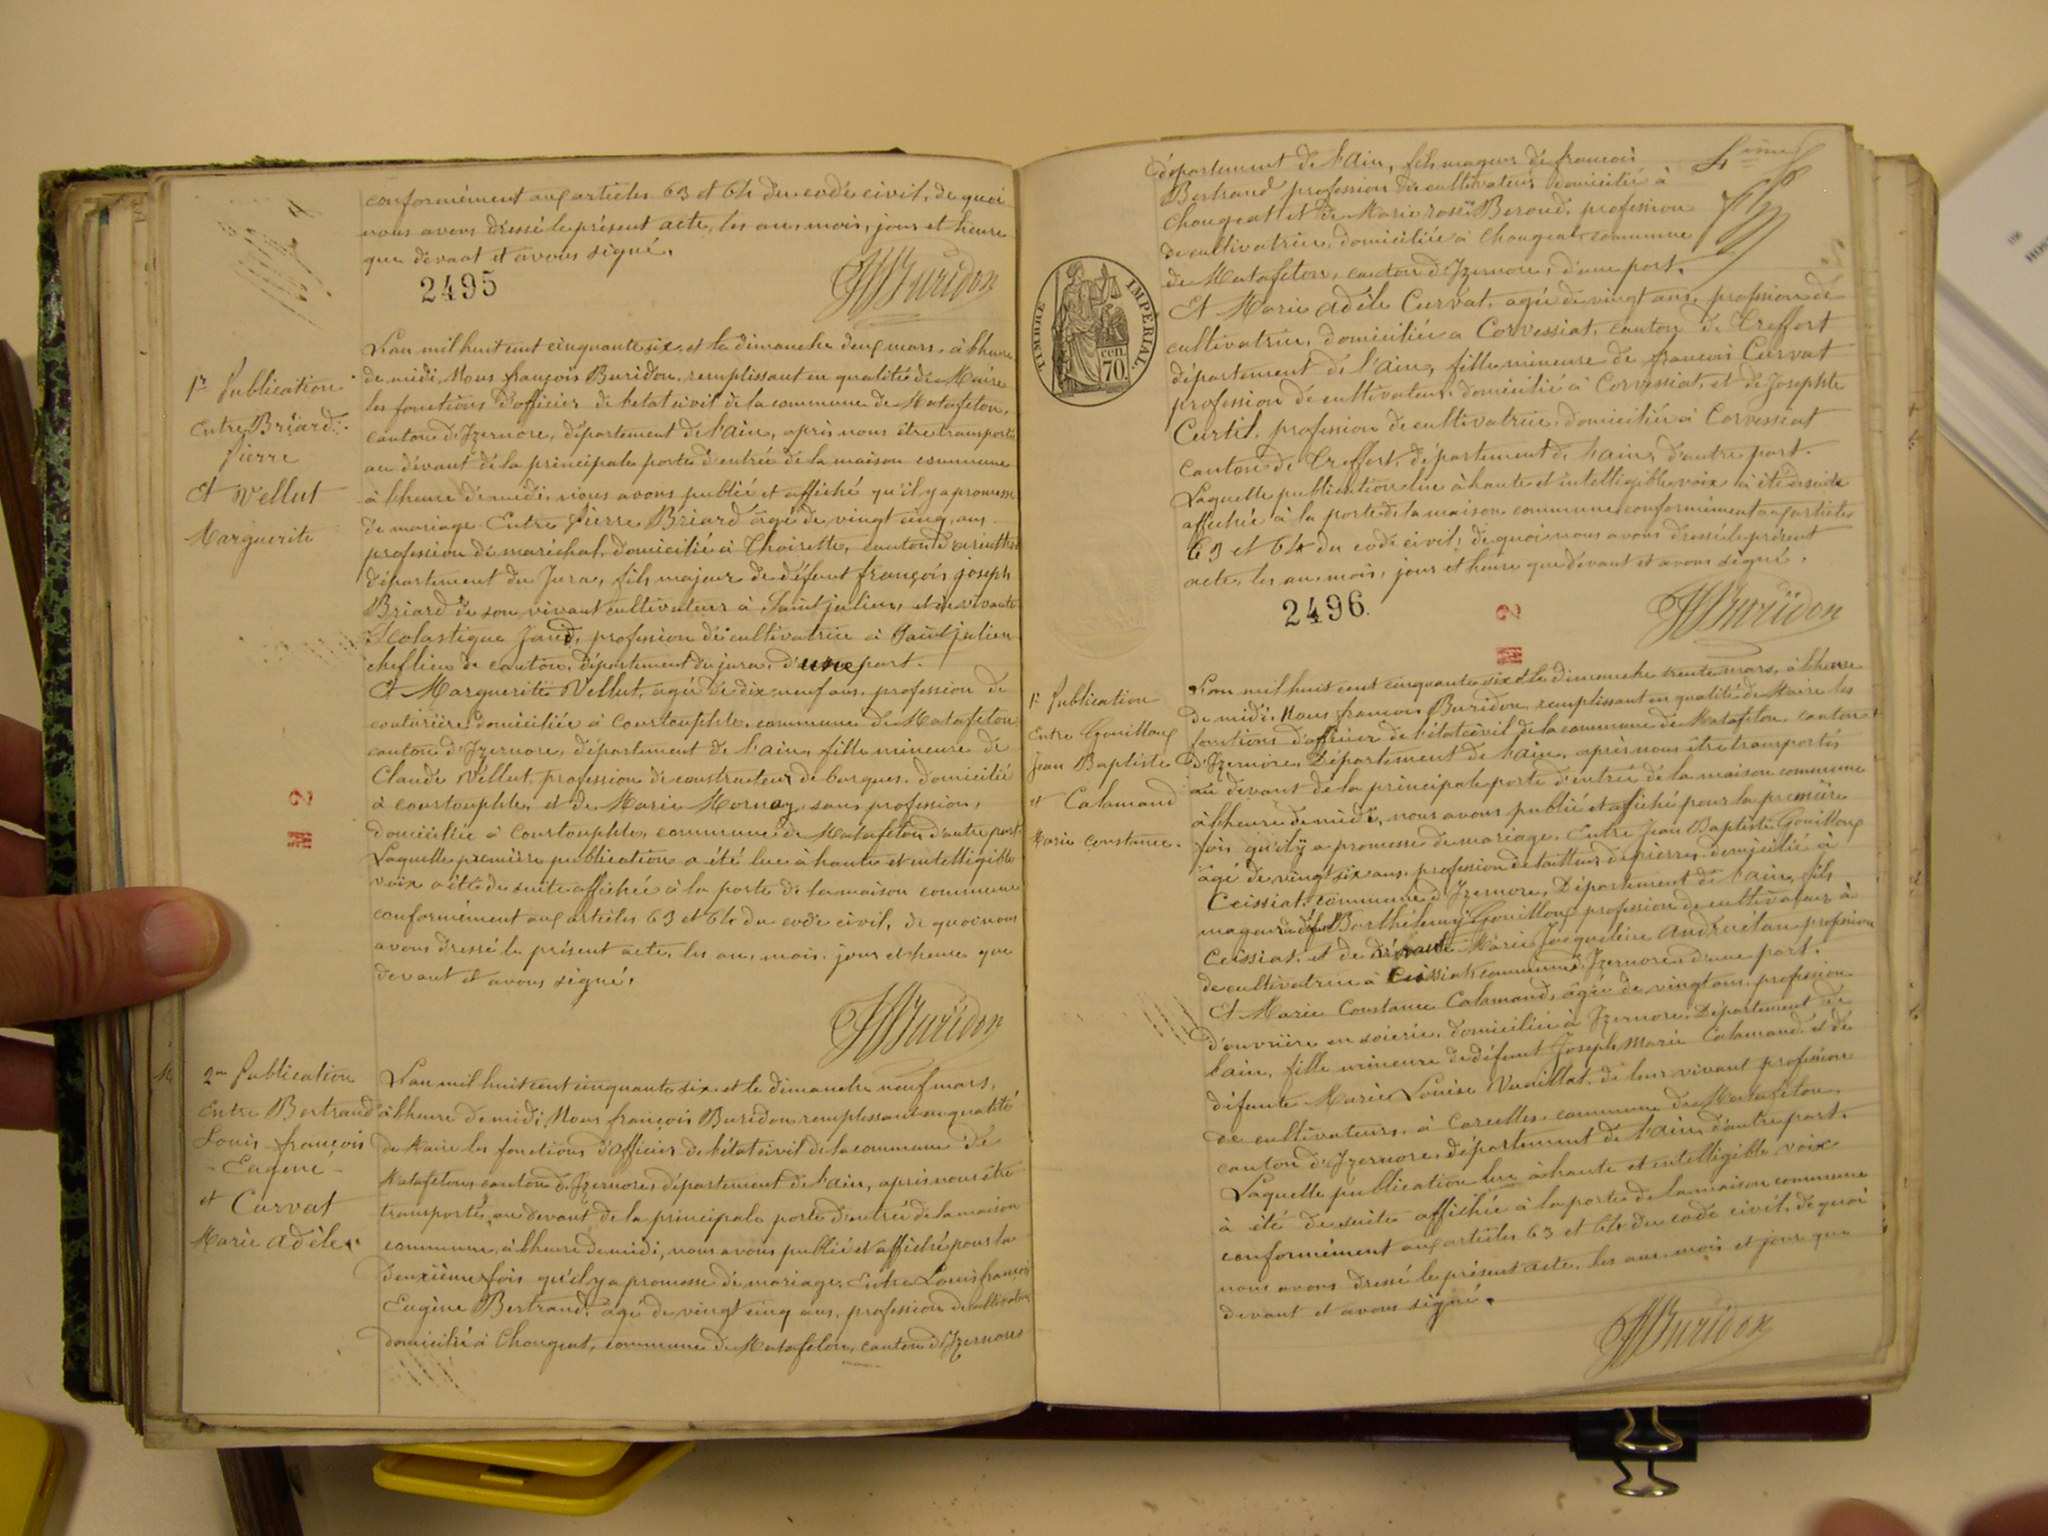 conformément aux articles 63 et 64 du code civil, de quoi
nous avons dressé le présent acte, les an, mois, jour et heure
que devant et avons signé.
2495
Buridon
1re Publication
Entre Briard
Pierre
Et Vellut
Marguerite
L'an mil huit cent cinquante six, et le dimanche deux mars, à l'heure
de midi, Nous françois Buridon, remplissant en qualité de Maire
les fonctions d'officier de l'état civil de la commune de Matafelon,
canton d'Izernore, département de l'ain, après nous être transporté
au dévant de la principale porte d'entrée de la maison commune
à l'heure de midi, nous avons publié et affiché qu'il y a promesse
de mariage Entre Pierre Briard âgé de vingt cinq ans
profession de maréchal, domicilié à Thoirette, canton d'
département du Jura, fils majeur de défunt françois joseph
Briard de son vivant cultivateur à Saint julien, et de vivante
Scolastique profession de cultivatrice à Saint julien
chef lieu de canton, département du jura, d'une part.
Et Marguerite Vellut, agée de dix neuf ans, profession de
couturière domiciliée à Courtouphle, commune de Matafelon
canton d'Izernore, département de l'ain, fille mineure de
Claude Vellut, profession de constructeur de barques, domicilié
à courtouphle, et de Marie Mornay, sans profession,
domiciliée à Courtouphle, commune de Matafelon d'autre part.
Laquelle première publication a été lue à haute et intelligible
voix a été de suite affichée à la porte de la maison commune
conformément aux articles 63 et 64 du code civil, de quoi nous
avons dressé le présent acte, les an, mois, jour et heure que
devant et avons signé.
Buridon
2me Publication
Entre Bertrand
Louis françois
- Eugène -
et Curvat
Marie adèle.
L'an mil huit cent cinquante six et le dimanche neuf mars,
à l'heure de midi, Nous françois Buridon remplissant en qualité
de Maire les fonctions d'officier de l'état civil de la commune de
Matafelon, canton d'Izernore, département de l'ain, après nous être
transporté, au devant de la principale porte d'entrée de la maison
commune, à l'heure de midi, nous avons publié et affiché pour la
deuxième fois qu'il y a promesse de mariage, Entre Louis françois
Eugène Bertrand, âgé de vingt cinq ans, profession de cultivateur
domicilié à Chougeat, commune de Matafelon, canton d'Izernore
département de l'Ain, fils majeur de françois
Bertrand profession de cultivateur domicilié à
Chougeat et de Marie rose Beroud, profession
de cultivatrice, domiciliée à Chougeat, commune
de Matafelon, canton d'Izernore, d'une part.
TIMBRE IMPÉRIAL
cen. 70
Et Marie adèle Curvat, agée de vingt ans, profession de
cultivatrice, domiciliée a Corvessiat, canton de Treffort
département de l'ain, fille mineure de françois Curvat
profession de cultivateur, domicilié à Corvessiat, et de Josephte
Curtil, profession de cultivatrice, domiciliée à Corvessiat
canton de Treffort, département de l'ain, d'autre part.
Laquelle publication lue à haute et intelligible voix a été de suite
affichée à la porte de la maison commune conformément aux articles
63 et 64 du code civil, de quoi nous avons dressé le présent
acte, les an, mois, jour et heure que devant et avons signé.
2496.
Buridon
1re Publication
Entre Gouilloux
jean Baptiste
et Calamand
Marie constance.
L'an mil huit cent cinquante six et le dimanche trente mars, à l'heure
de midi, Nous francois Buridon, remplissant en qualité de Maire les
fonctions d'officier de l'état civil de la commune de Matafelon canton
d'Izernore, Département de l'ain, après nous être transportés
au devant de la principale porte d'entrée de la maison commune
à l'heure de midi, nous avons publié et affiché pour la première
fois qu'il y a promesse de mariage, Entre Jean Baptiste Gouilloux
âgé de vingt six ans, profession de tailleur de pierres, domicilié à
Ceissiat, commune d'Izernore, Département de l'ain, fils
majeur de Barthélemy Gouilloux profession de cultivateur à
Ceissiat, et de Marie Jacqueline profession
de cultivatrice à Ceissiat commune d'Izernore d'une part.
Et Marie Constance Calamand, âgée de vingt ans, profession
d'ouvrière en soierie, domiciliée à Izernore, Département de
l'ain, fille mineure de défunt Joseph Marie Calamand et de
défunte Marie Louise Vuaillat, de leur vivant profession
de cultivateurs, à Corcelles, commune de Matafelon,
canton d'Izernore, département de l'ain, d'autre part.
Laquelle publication lue à haute et intelligible voix
à été de suite affichée à la porte de la maison commune
conformément aux articles 63 et 64 du code civil, de quoi
nous avons dressé le présent acte, les an, mois et jour que
devant et avons signé.
Buridon